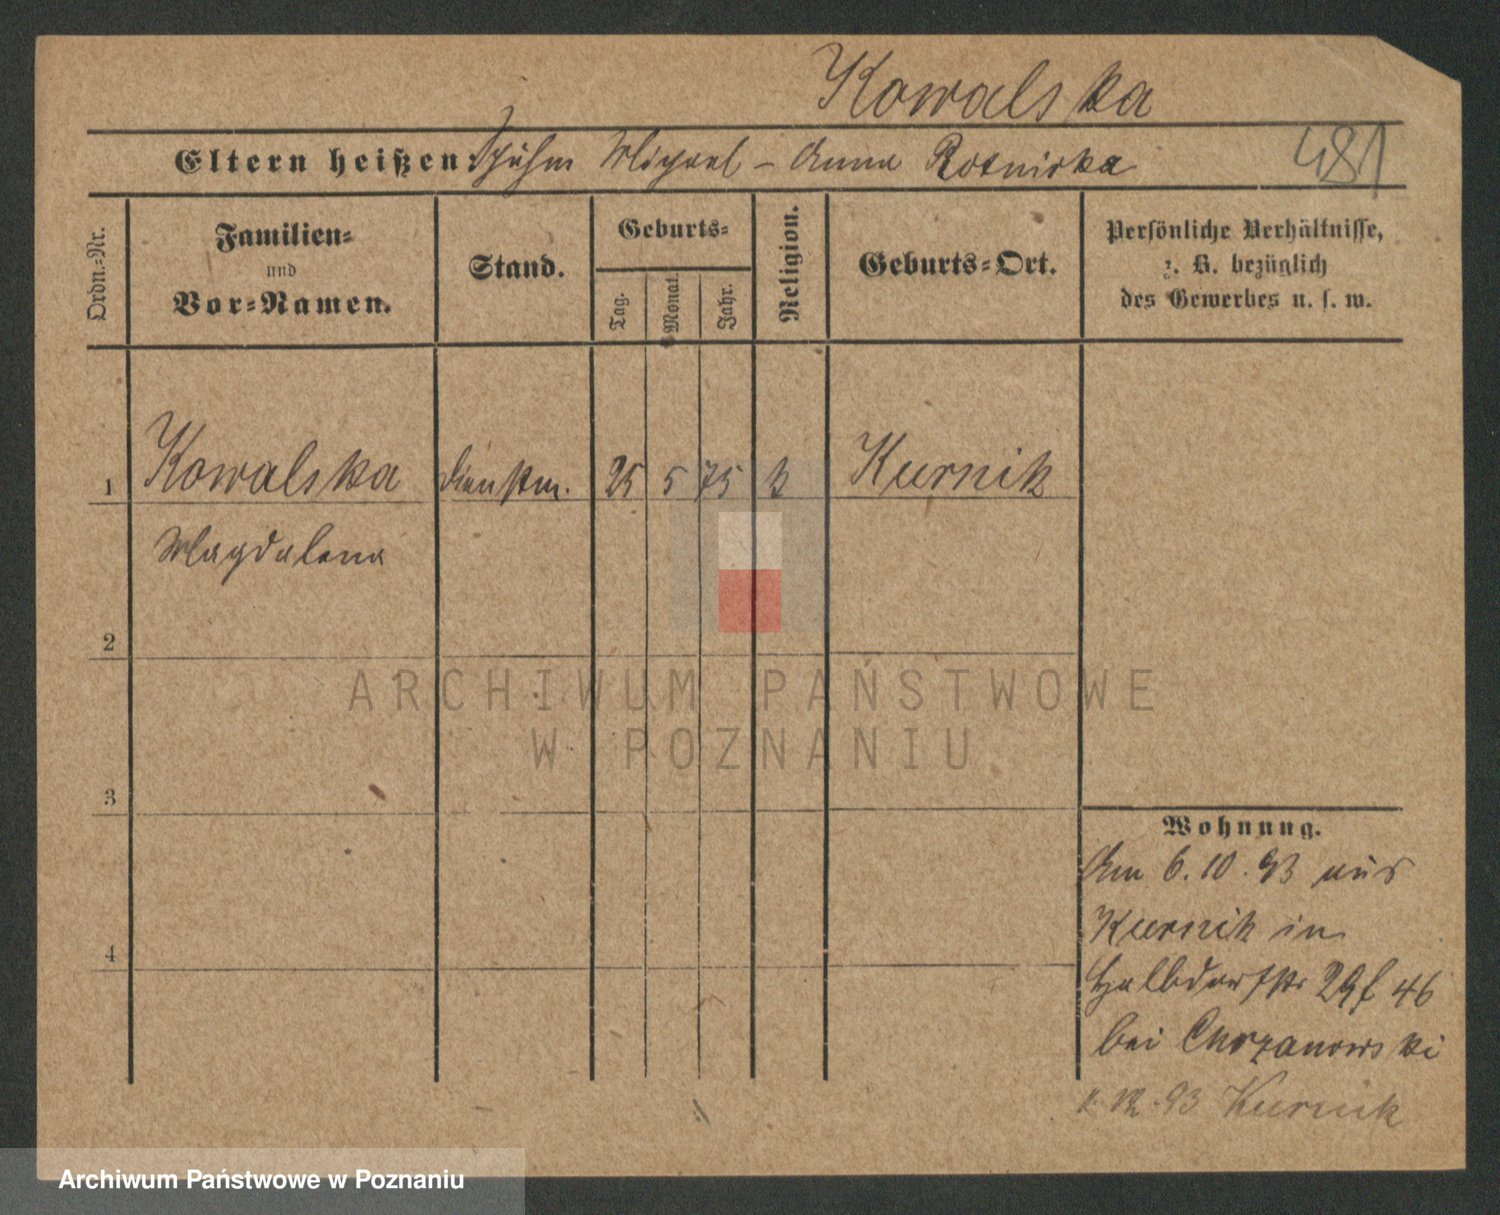 Kowalska
Eltern heißen: Michael - Anna
481
Ordn.-Nr.
Familien-
und
Vor-Namen.
Stand.
Geburts-
Tag.
Monat.
Jahr.
Religion.
Geburts-Ort.
Persönliche Verhältnisse,
z. B. bezüglich
des Gewerbes u. s. w.
1 Kowalska Dienstm. 25 5 75 k Kurnik
Magdalena
2
3
4
Wohnung.
Am 6.10.93 aus
Kurnik in
Halbdorfstr 46
bei Chrzanowski
12.93 Kurnik
ARCHIWUM PAŃSTWOWE
W POZNANIU
Archiwum Państwowe w Poznaniu